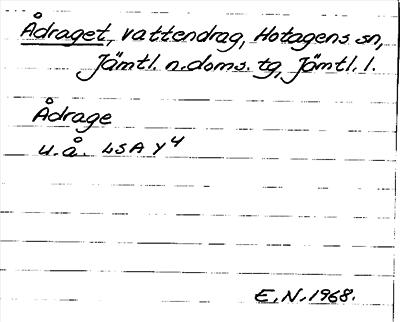 Ådraget, vattendrag, Hotagens sn,
Jämtl. n. doms. tg, Jämtl. l.
Ådrage
u. å. LSA Y4
E. N. 1968.